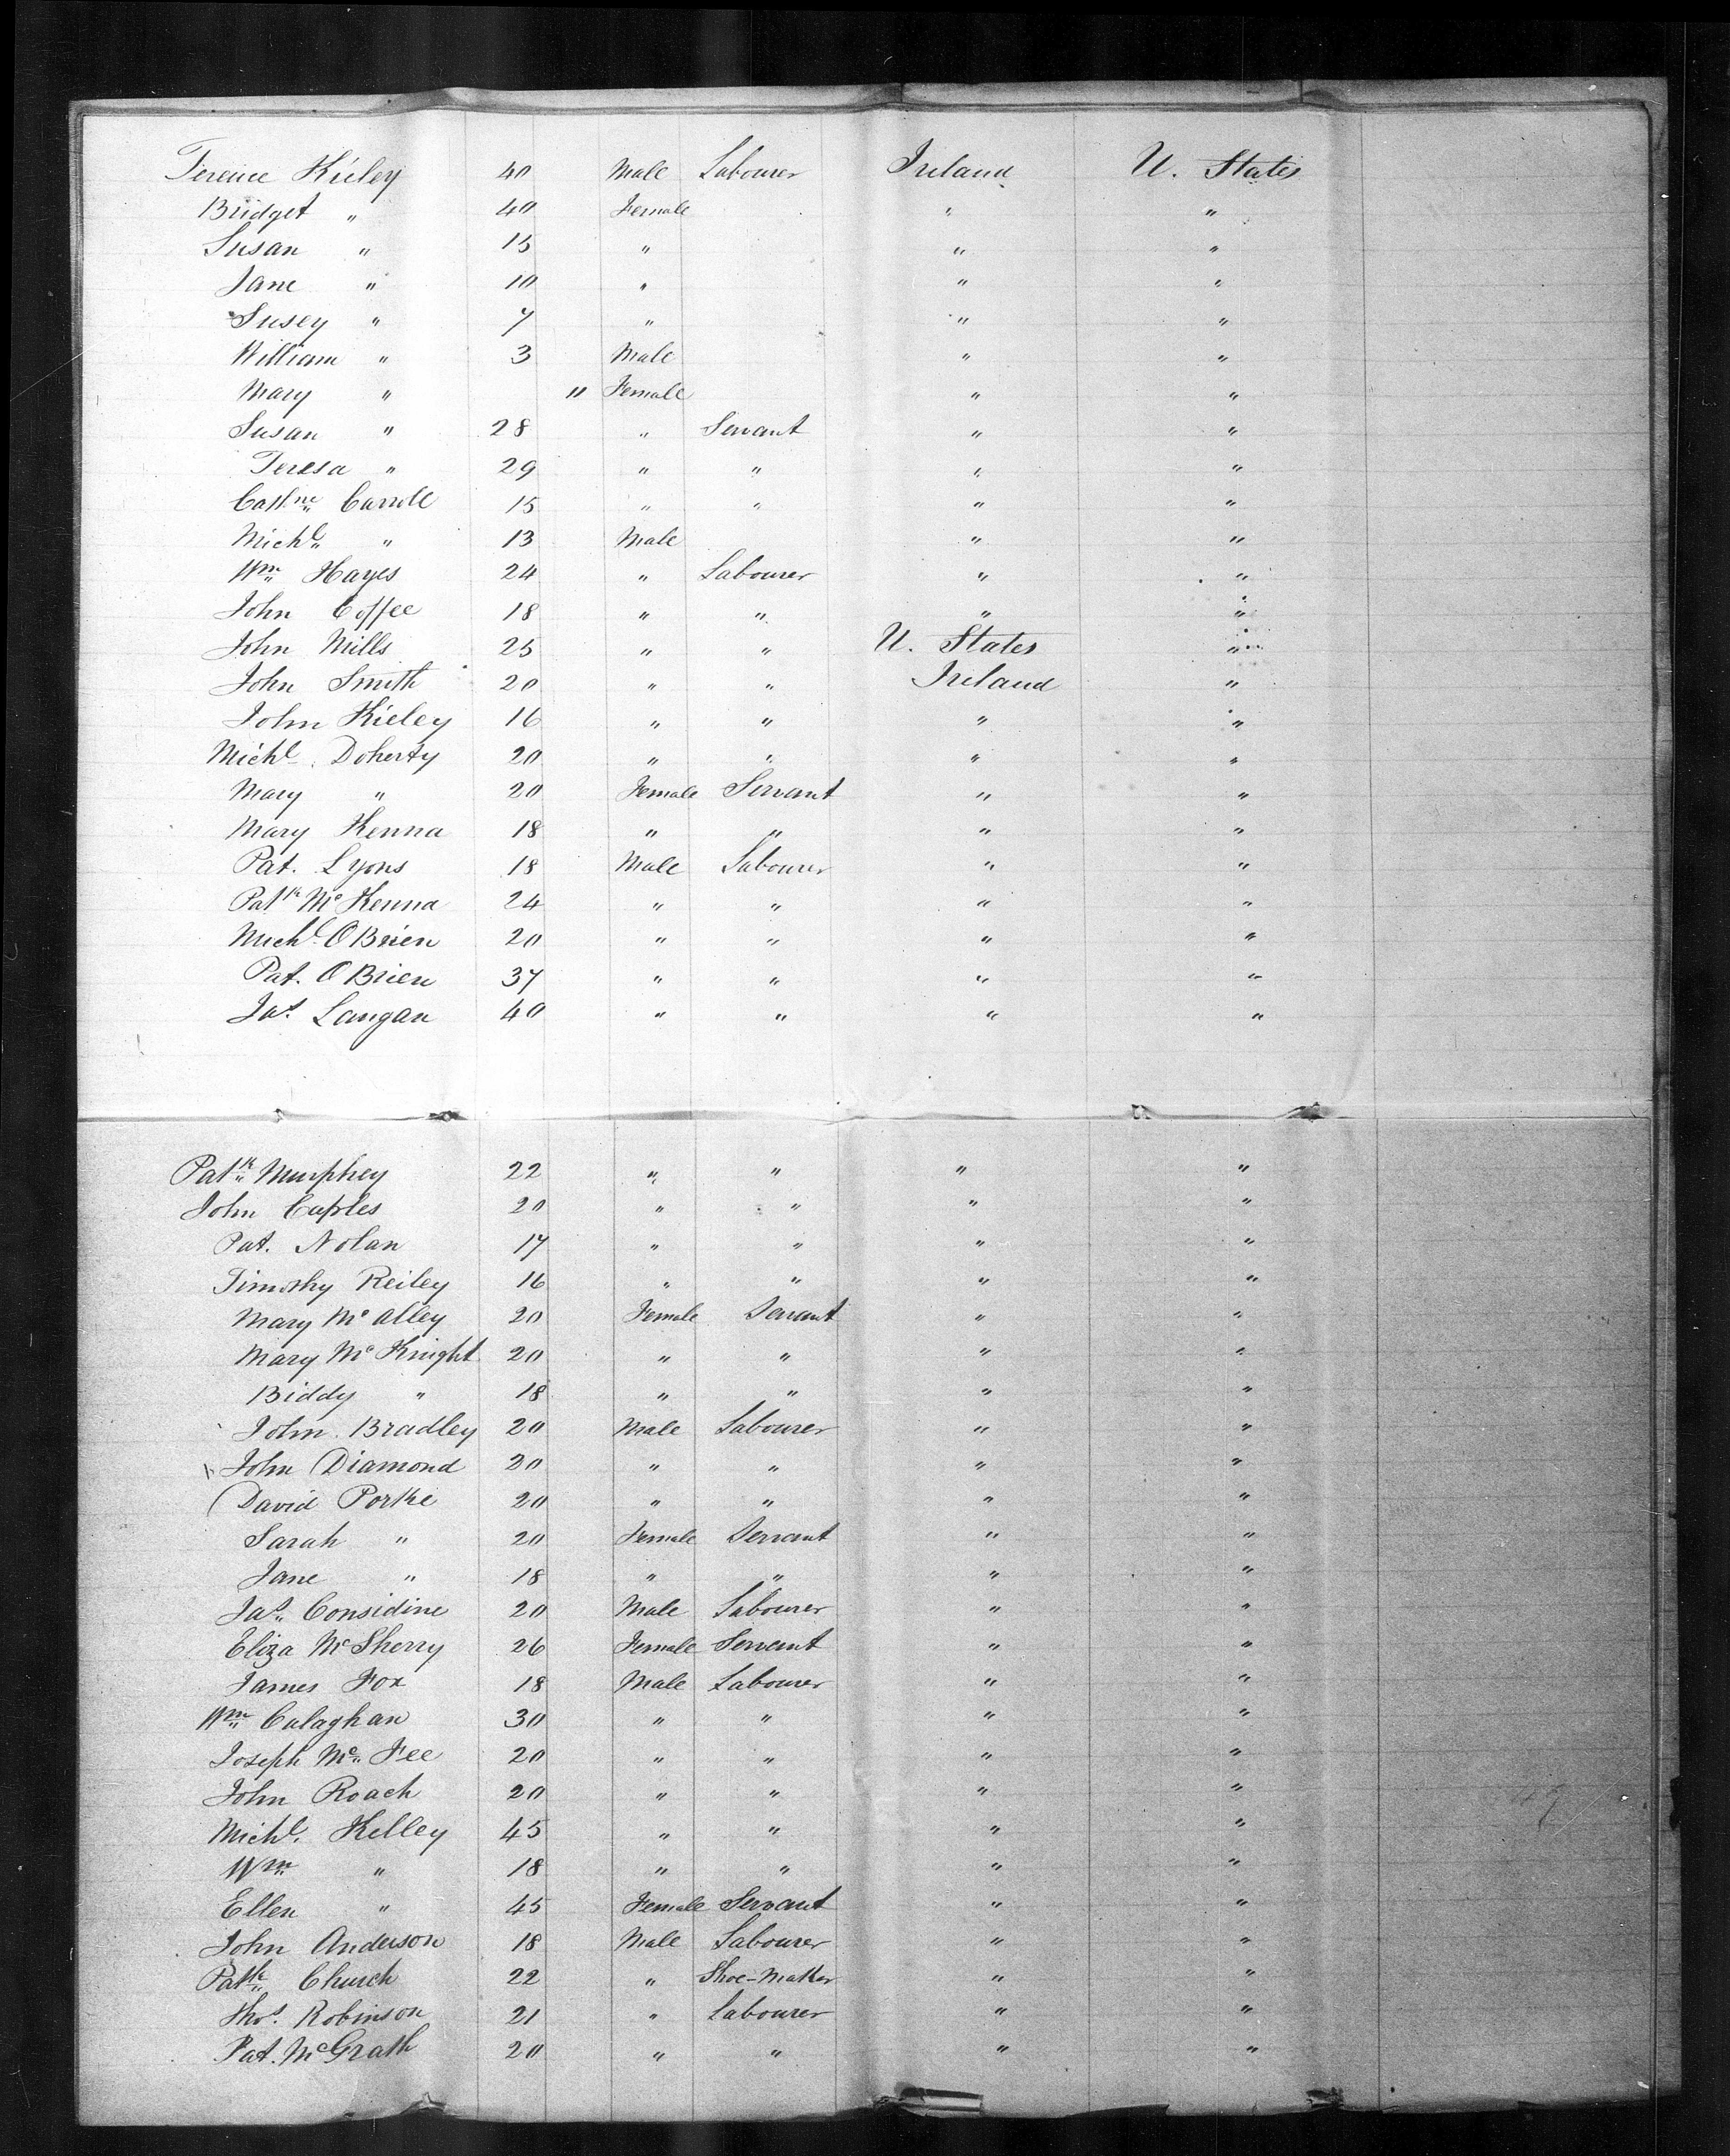 Terence Kieley 40 Male Labourer Ireland U. States
Bridget " 40 Female " "
Susan " 15 " " "
Jane " 10 " " "
Susey " 7 " " "
William " 3 Male " "
Mary " " Female " "
Susan " 28 " Servant " "
Teresa " 29 " " " "
Cathne Carroll 15 " " " "
Michl " 13 Male " "
Wm Hayes 24 " Labourer " "
John Coffee 18 " " " "
John Mills 25 " " U. States "
John Smith 20 " " Ireland "
John Kieley 16 " " " "
Michl. Doherty 20 " " " "
Mary " 20 Female Servant " "
Mary Kenna 18 " " " "
Pat. Lyons 18 Male Labourer " "
Patk McKenna 24 " " " "
Michl. O Brien 20 " " " "
Pat. O Brien 37 " " " "
Jas. Langan 40 " " " "
Patk Murphey 22 " " " "
John Caples 20 " " " "
Pat. Nolan 17 " " " "
Timothy Reiley 16 " " " "
Mary Mc Alley 20 Female Servant " "
Mary Mc Knight 20 " " " "
Biddy " 18 " " " "
John Bradley 20 Male Labourer " "
John Diamond 20 " " " "
David Porke 20 " " " "
Sarah " 20 Female Servant " "
Jane " 18 " " " "
Jas. Considine 20 Male Labourer " "
Eliza McSherry 26 Female Servant " "
James Fox 18 Male Labourer " "
Wm Calaghan 30 " " " "
Joseph Mc Fee 20 " " " "
John Roach 20 " " " "
Michl. Kelley 45 " " " "
Wm " 18 " " " "
Ellen " 45 Female Servant " "
John Anderson 18 Male Labourer " "
Patk Church 22 " Shoe-Maker " "
Thos. Robinson 21 " Labourer " "
Pat. McGrath 20 " " " "